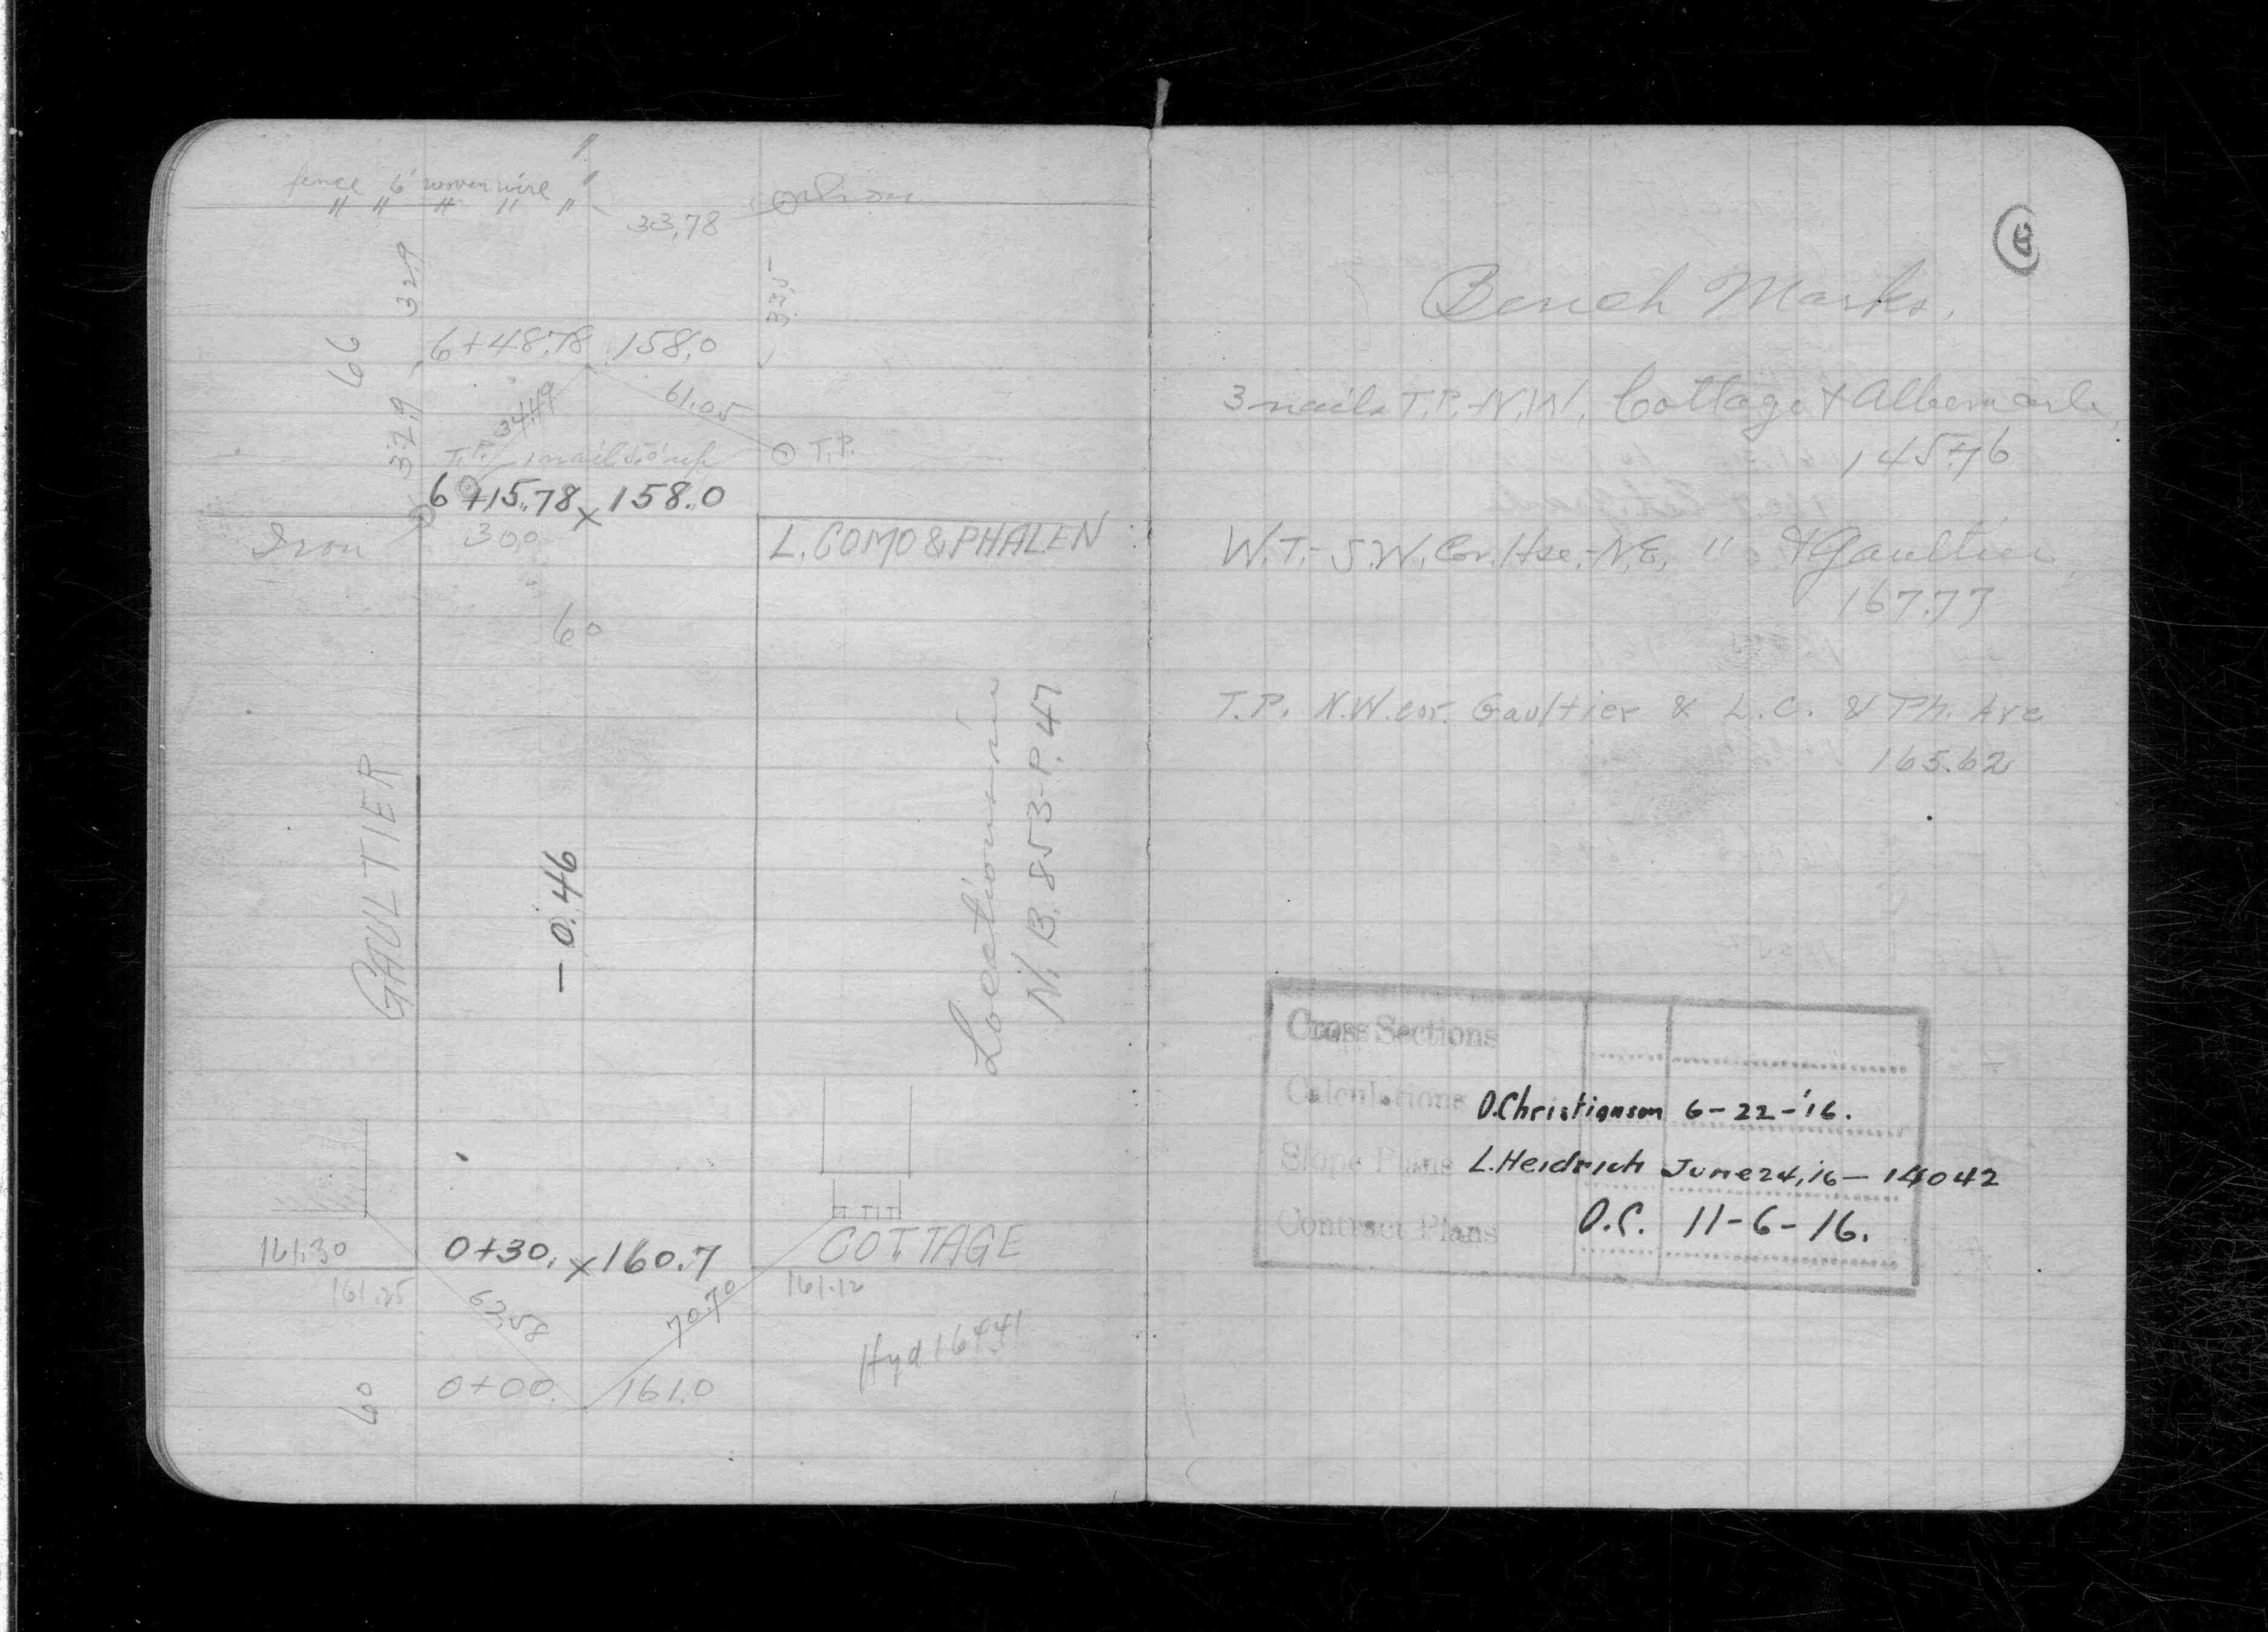 fence 6' woven wire "
" " " " " "
33.78
32.9
33.5
66
6+48.78 158.0
34.49
61.05
32.9
T.P.
T.P.
6+15.78 x 158.0
Iron
30.0
L. COMO & PHALEN
60
GAULTIER
- 0.46
Locations in
N.B. 853-P.47
161.30
0+30. x 160.7
COTTAGE
161.25
63.58
70.70
161.12
Hyd 164.41
60
0+00. 161.0
Bench Marks.
3 nails T.P. N.W. Cottage & Albemarle,
145.76
W.T.- S.W. Cor. Hse.-N.E. " & Gaultier,
167.77
T.P. N.W. cor. Gaultier & L.C. & Ph. Ave
165.62
Cross Sections
Calculations O.Christianson 6-22-'16.
Slope Plans L.Heidrich June 24,'16- 14042
Contract Plans O.C. 11-6-16.